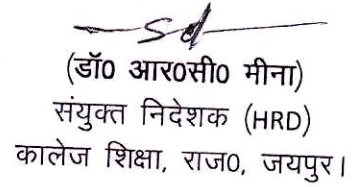 sd
(डॉ0 आर0सी0 मीना)
संयुक्त निदेशक (HRD)
कालेज शिक्षा, राज0, जयपुर।